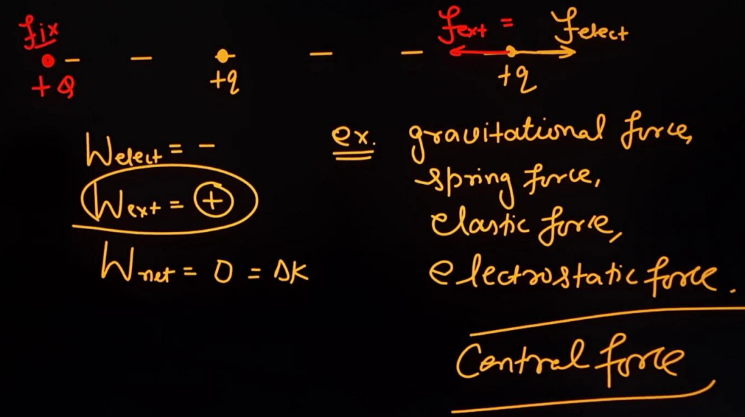 fix
+Q
+q
Fext = Felect
+q
Welect = -
Wext = +
Wnet = 0 = ΔK
ex. gravitational force,
spring force,
elastic force,
electrostatic force.
Central force